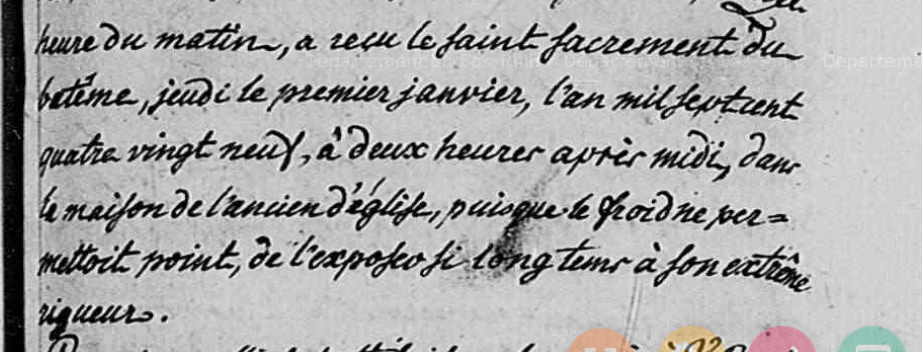 heure du matin, a reçu le saint sacrement du
batême, jeudi le premier janvier, l'an mil sept cent
quatre vingt neuf, à deux heures après midi, dans
la maison de l'ancien d'église, puisque le froid ne per=
mettoit point, de l'exposer si long tems à son extrême
rigueur.